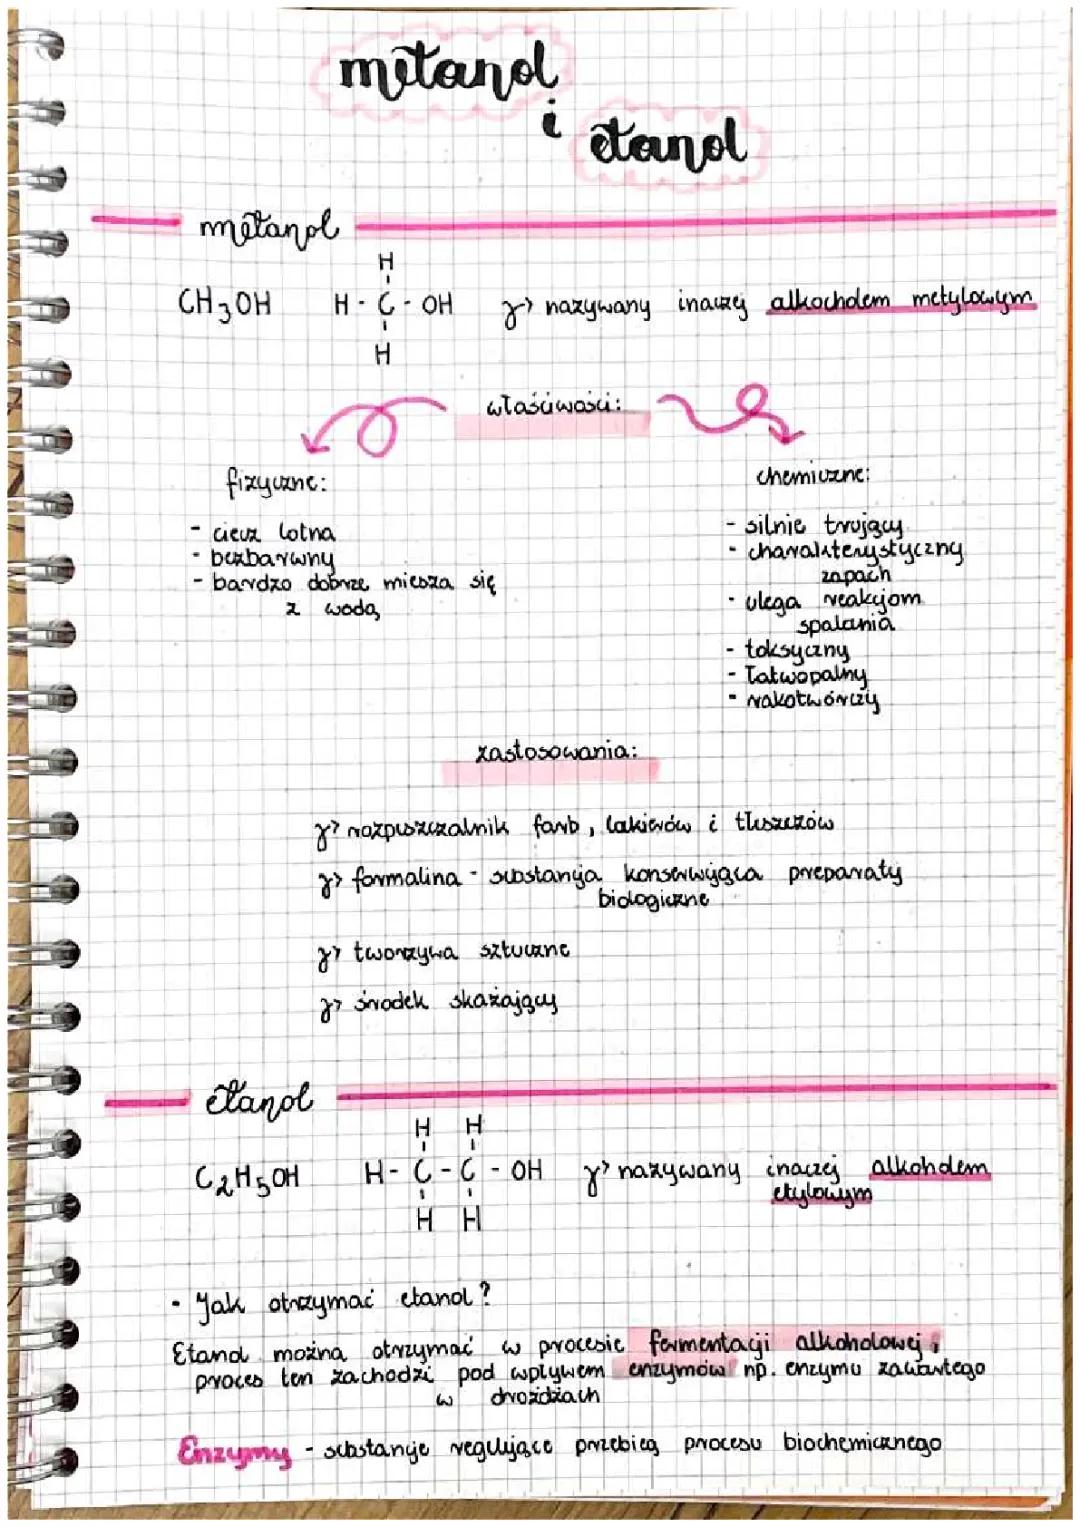 metanol
i
etanol
metanol
H
CH3OH H - C - OH → nazywany inaczej alkocholem metylowym
H
właściwości:
fizyczne:
- ciecz lotna
- bezbarwny
- bardzo dobrze miesza się
z wodą
chemiczne:
- silnie trujący
- charakterystyczny
zapach
- ulega reakcjom
spalania
- toksyczny
- łatwopalny
- rakotwórczy
zastosowania:
→ rozpuszczalnik farb, lakierów i tłuszczów
→ formalina - substancja konserwująca preparaty
biologiczne
→ tworzywa sztuczne
→ środek skażający
etanol
H H
C2H5OH H - C - C - OH → nazywany inaczej alkoholem
etylowym
H H
- Jak otrzymać etanol?
Etanol można otrzymać w procesie fermentacji alkoholowej,
proces ten zachodzi pod wpływem enzymów np. enzymu zawartego
w drożdżach
Enzymy - substancje regulujące przebieg procesu biochemicznego